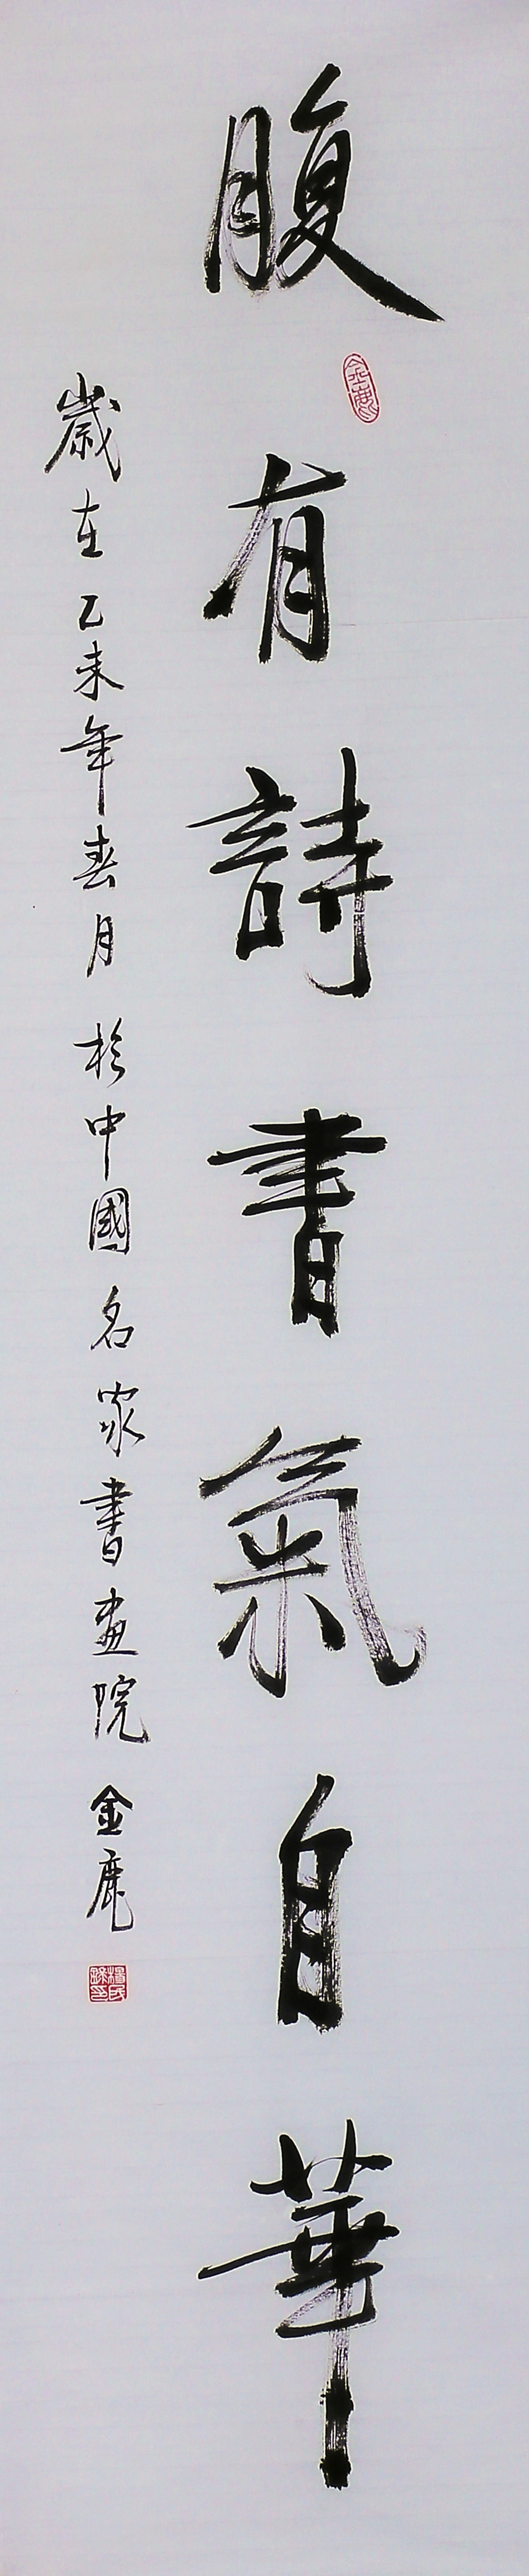 腹有詩書氣自華
歲在乙未年春月於中國名家書畫院金鹿
金鹿